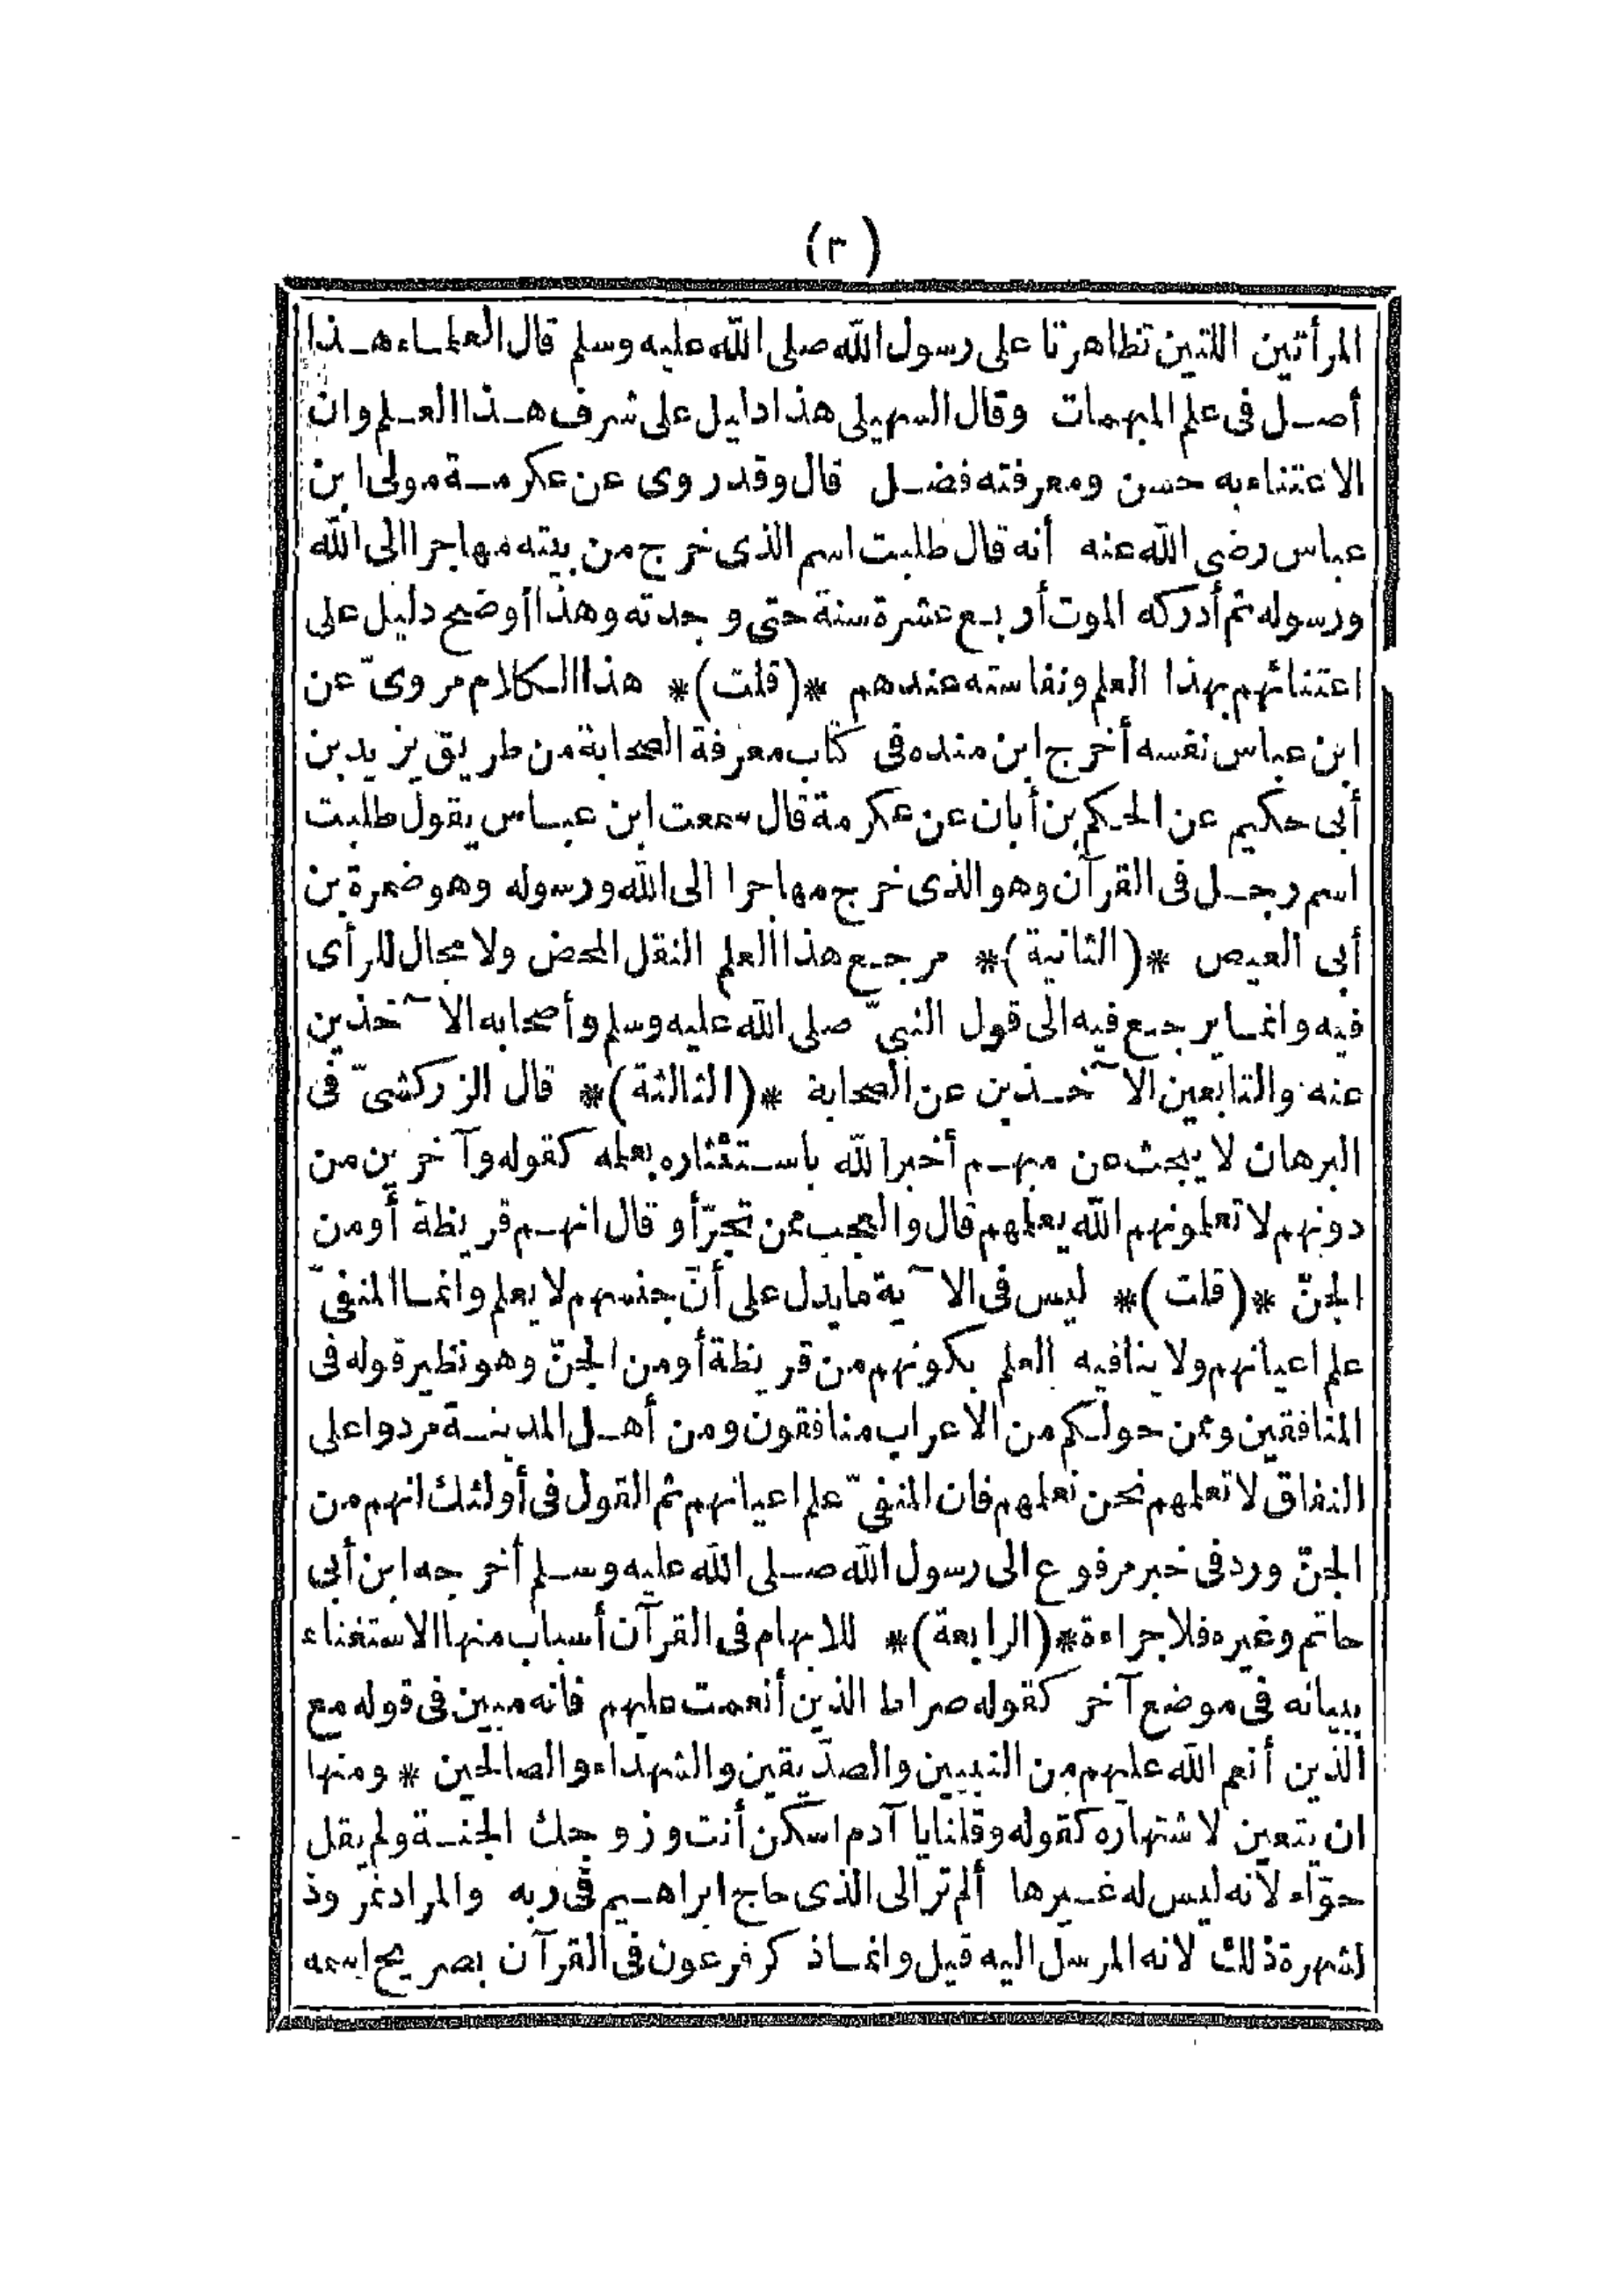 (٣)
المرأتين اللتين تظاهرتا على رسول الله صلى الله عليه وسلم قال العلماء هذا
أصل فى علم المبهمات وقال السهيلى هذا دليل على شرف هذا العلم وان
الاعتناء به حسن ومعرفته فضل قال وقد روى عن عكرمة مولى ابن
عباس رضى الله عنه أنه قال طلبت اسم الذى خرج من بيته مهاجرا الى الله
ورسوله ثم أدركه الموت أربع عشرة سنة حتى وجدته وهذا أوضح دليل على
اعتنائهم بهذا العلم ونفاسته عندهم *(قلت)* هذا الكلام مروىّ عن
ابن عباس نفسه أخرج ابن منده فى كتاب معرفة الصحابة من طريق يزيد بن
أبى حكيم عن الحكم بن أبان عن عكرمة قال سمعت ابن عباس يقول طلبت
اسم رجل فى القرآن وهو الذى خرج مهاجرا الى الله ورسوله وهو ضمرة بن
أبى العيص *(الثانية)* مرجع هذا العلم النقل المحض ولا مجال للرأى
فيه وانما يرجع فيه الى قول النبىّ صلى الله عليه وسلم وأصحابه الآخذين
عنه والتابعين الآخذين عن الصحابة *(الثالثة)* قال الزركشىّ فى
البرهان لا يبحث عن مبهم أخبر الله باستئثاره بعلمه كقوله وآخرين من
دونهم لا تعلمونهم الله يعلمهم قال والعجب ممن تجرّأ وقال انهم قريظة أو من
الجنّ *(قلت)* ليس فى الآية ما يدل على أنّ جنسهم لا يعلم وانما المنفىّ
علم اعيانهم ولا ينافيه العلم بكونهم من قريظة أو من الجنّ وهو نظير قوله فى
المنافقين وممن حولكم من الاعراب منافقون ومن أهل المدينة مردوا على
النفاق لا تعلمهم نحن نعلمهم فان المنفىّ علم اعيانهم ثم القول فى أولئك انهم من
الجنّ ورد فى خبر مرفوع الى رسول الله صلى الله عليه وسلم أخرجه ابن أبى
حاتم وغيره فلا جراءة *(الرابعة)* للابهام فى القرآن أسباب منها الاستغناء
ببيانه فى موضع آخر كقوله صراط الذين أنعمت عليهم فانه مبين فى قوله مع
الذين أنعم الله عليهم من النبيين والصدّيقين والشهداء والصالحين * ومنها
ان يتعين لاشتهاره كقوله وقلنا يا آدم اسكن أنت وزوجك الجنة ولم يقل
حوّاء لأنه ليس له غيرها ألم تر الى الذى حاج ابراهيم فى ربه والمراد نمروذ
لشهرة ذلك لانه المرسل اليه قيل وانما ذكر فرعون فى القرآن بصريح اسمه